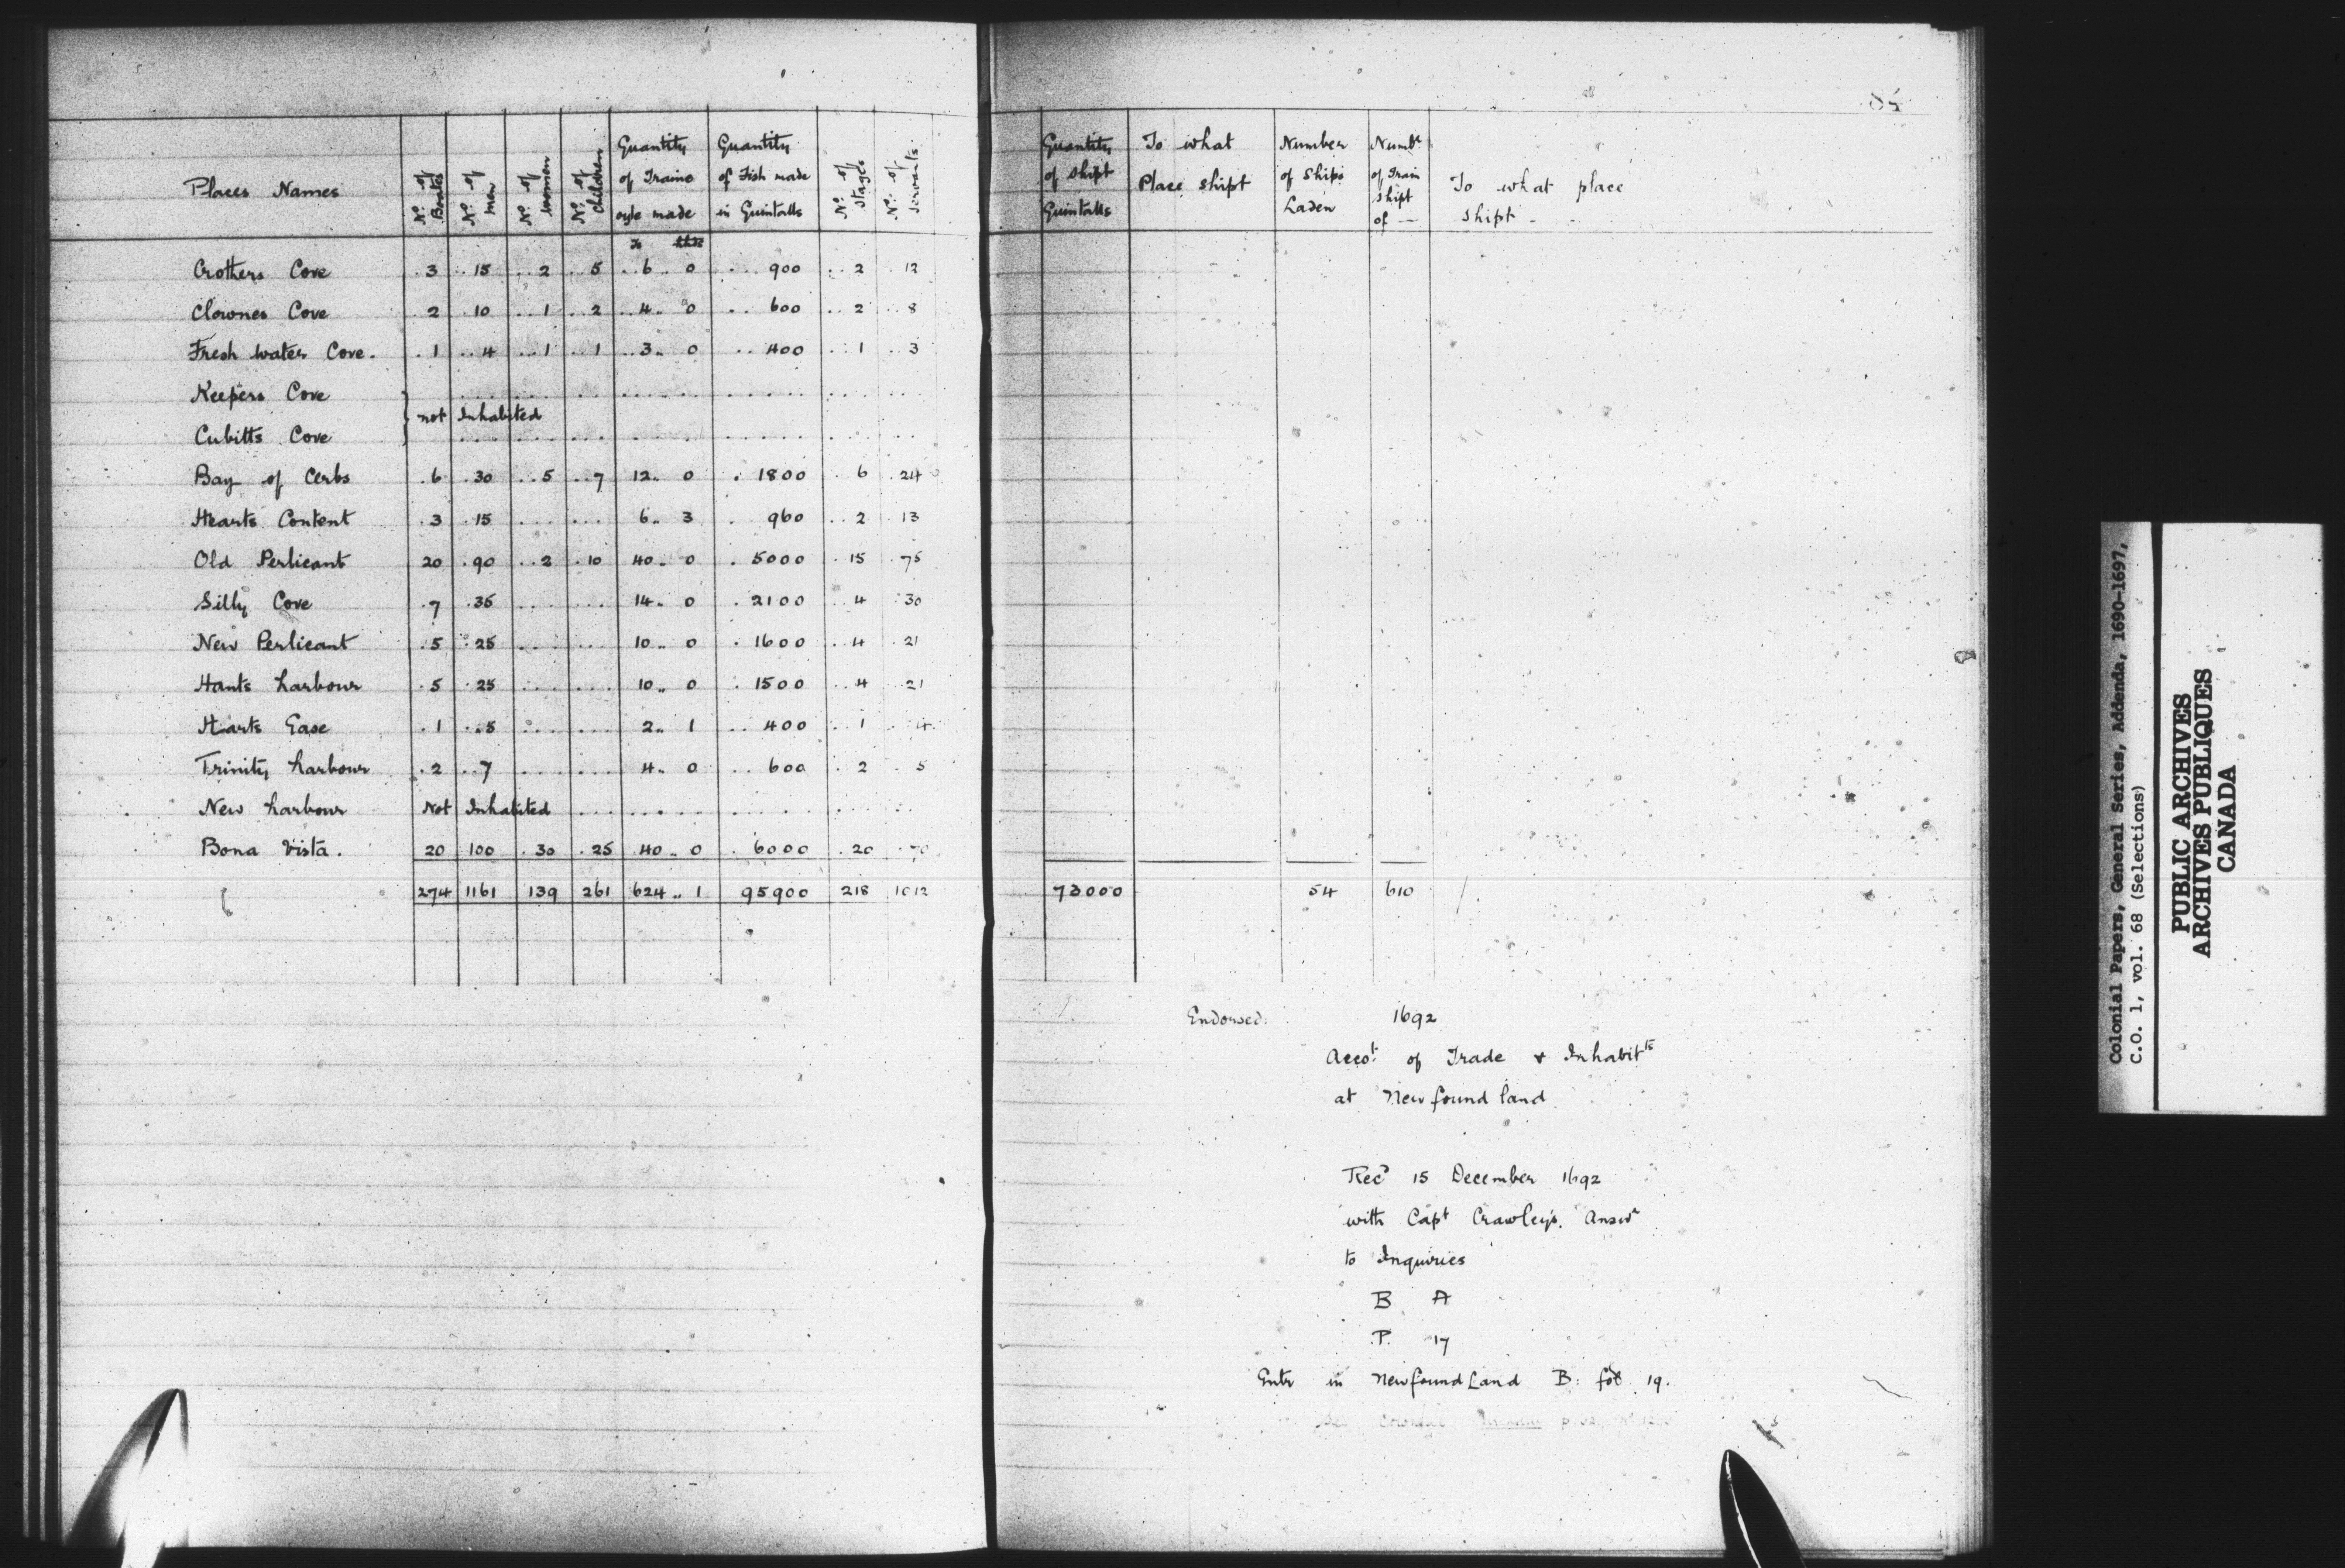 Places Names | No. of Boates | No. of men | No. of women | No. of children | Quantity of Traine oyle made | Quantity of Fish made in Quintalls | No. of Stages | No. of Servants
Crothers Cove . 3 .. 15 .. 2 .. 5 .. 6 .. 0 ... 900 .. 2 . 12
Clownes Cove 2 . 10 .. 1 .. 2 .. 4 .. 0 .. 600 .. 2 .. 8
Fresh water Cove . . 1 .. 4 .. 1 .. 1 .. 3 .. 0 .. 400 .. 1 .. 3
Keepers Cove
not Inhabited
Cubitts Cove
Bay of Cerbs . 6 . 30 .. 5 .. 7 12 .. 0 . 1800 . 6 . 24
Hearts Content . 3 . 15 ... ... 6 .. 3 . 960 .. 2 . 13
Old Perlicant 20 . 90 .. 2 . 10 40 .. 0 . 5000 . 15 . 75
Silly Cove . 7 . 35 ... ... 14 .. 0 . 2100 .. 4 . 30
New Perlicant . 5 . 25 ... ... 10 .. 0 . 1600 .. 4 . 21
Hants harbour . 5 . 25 ... ... 10 .. 0 . 1500 .. 4 . 21
Harts Ease . 1 .. 5 ... ... 2 .. 1 .. 400 .. 1 . 4
Trinity harbour . 2 .. 7 ... ... 4 .. 0 .. 600 . 2 . 5
New harbour Not Inhabited
Bona Vista . 20 100 . 30 . 25 40 .. 0 . 6000 . 20 . 70
274 1161 139 261 624 .. 1 95900 218 1012
85
Quantity of shipt Quintalls | To what Place shipt | Number of Ships Laden | Numbr of Train shipt of — | To what place shipt -
73000 54 610
Endorsed: 1692
Accot. of Trade & Inhabitts
at Newfoundland
Recd 15 December 1692
with Capt Crawleys. Answr
to Inquiries
B A
P. 17
Entr in NewfoundLand B: fol 19.
Colonial Papers, General Series, Addenda, 1690-1697,
C.O. 1, vol. 68 (Selections)
PUBLIC ARCHIVES
ARCHIVES PUBLIQUES
CANADA